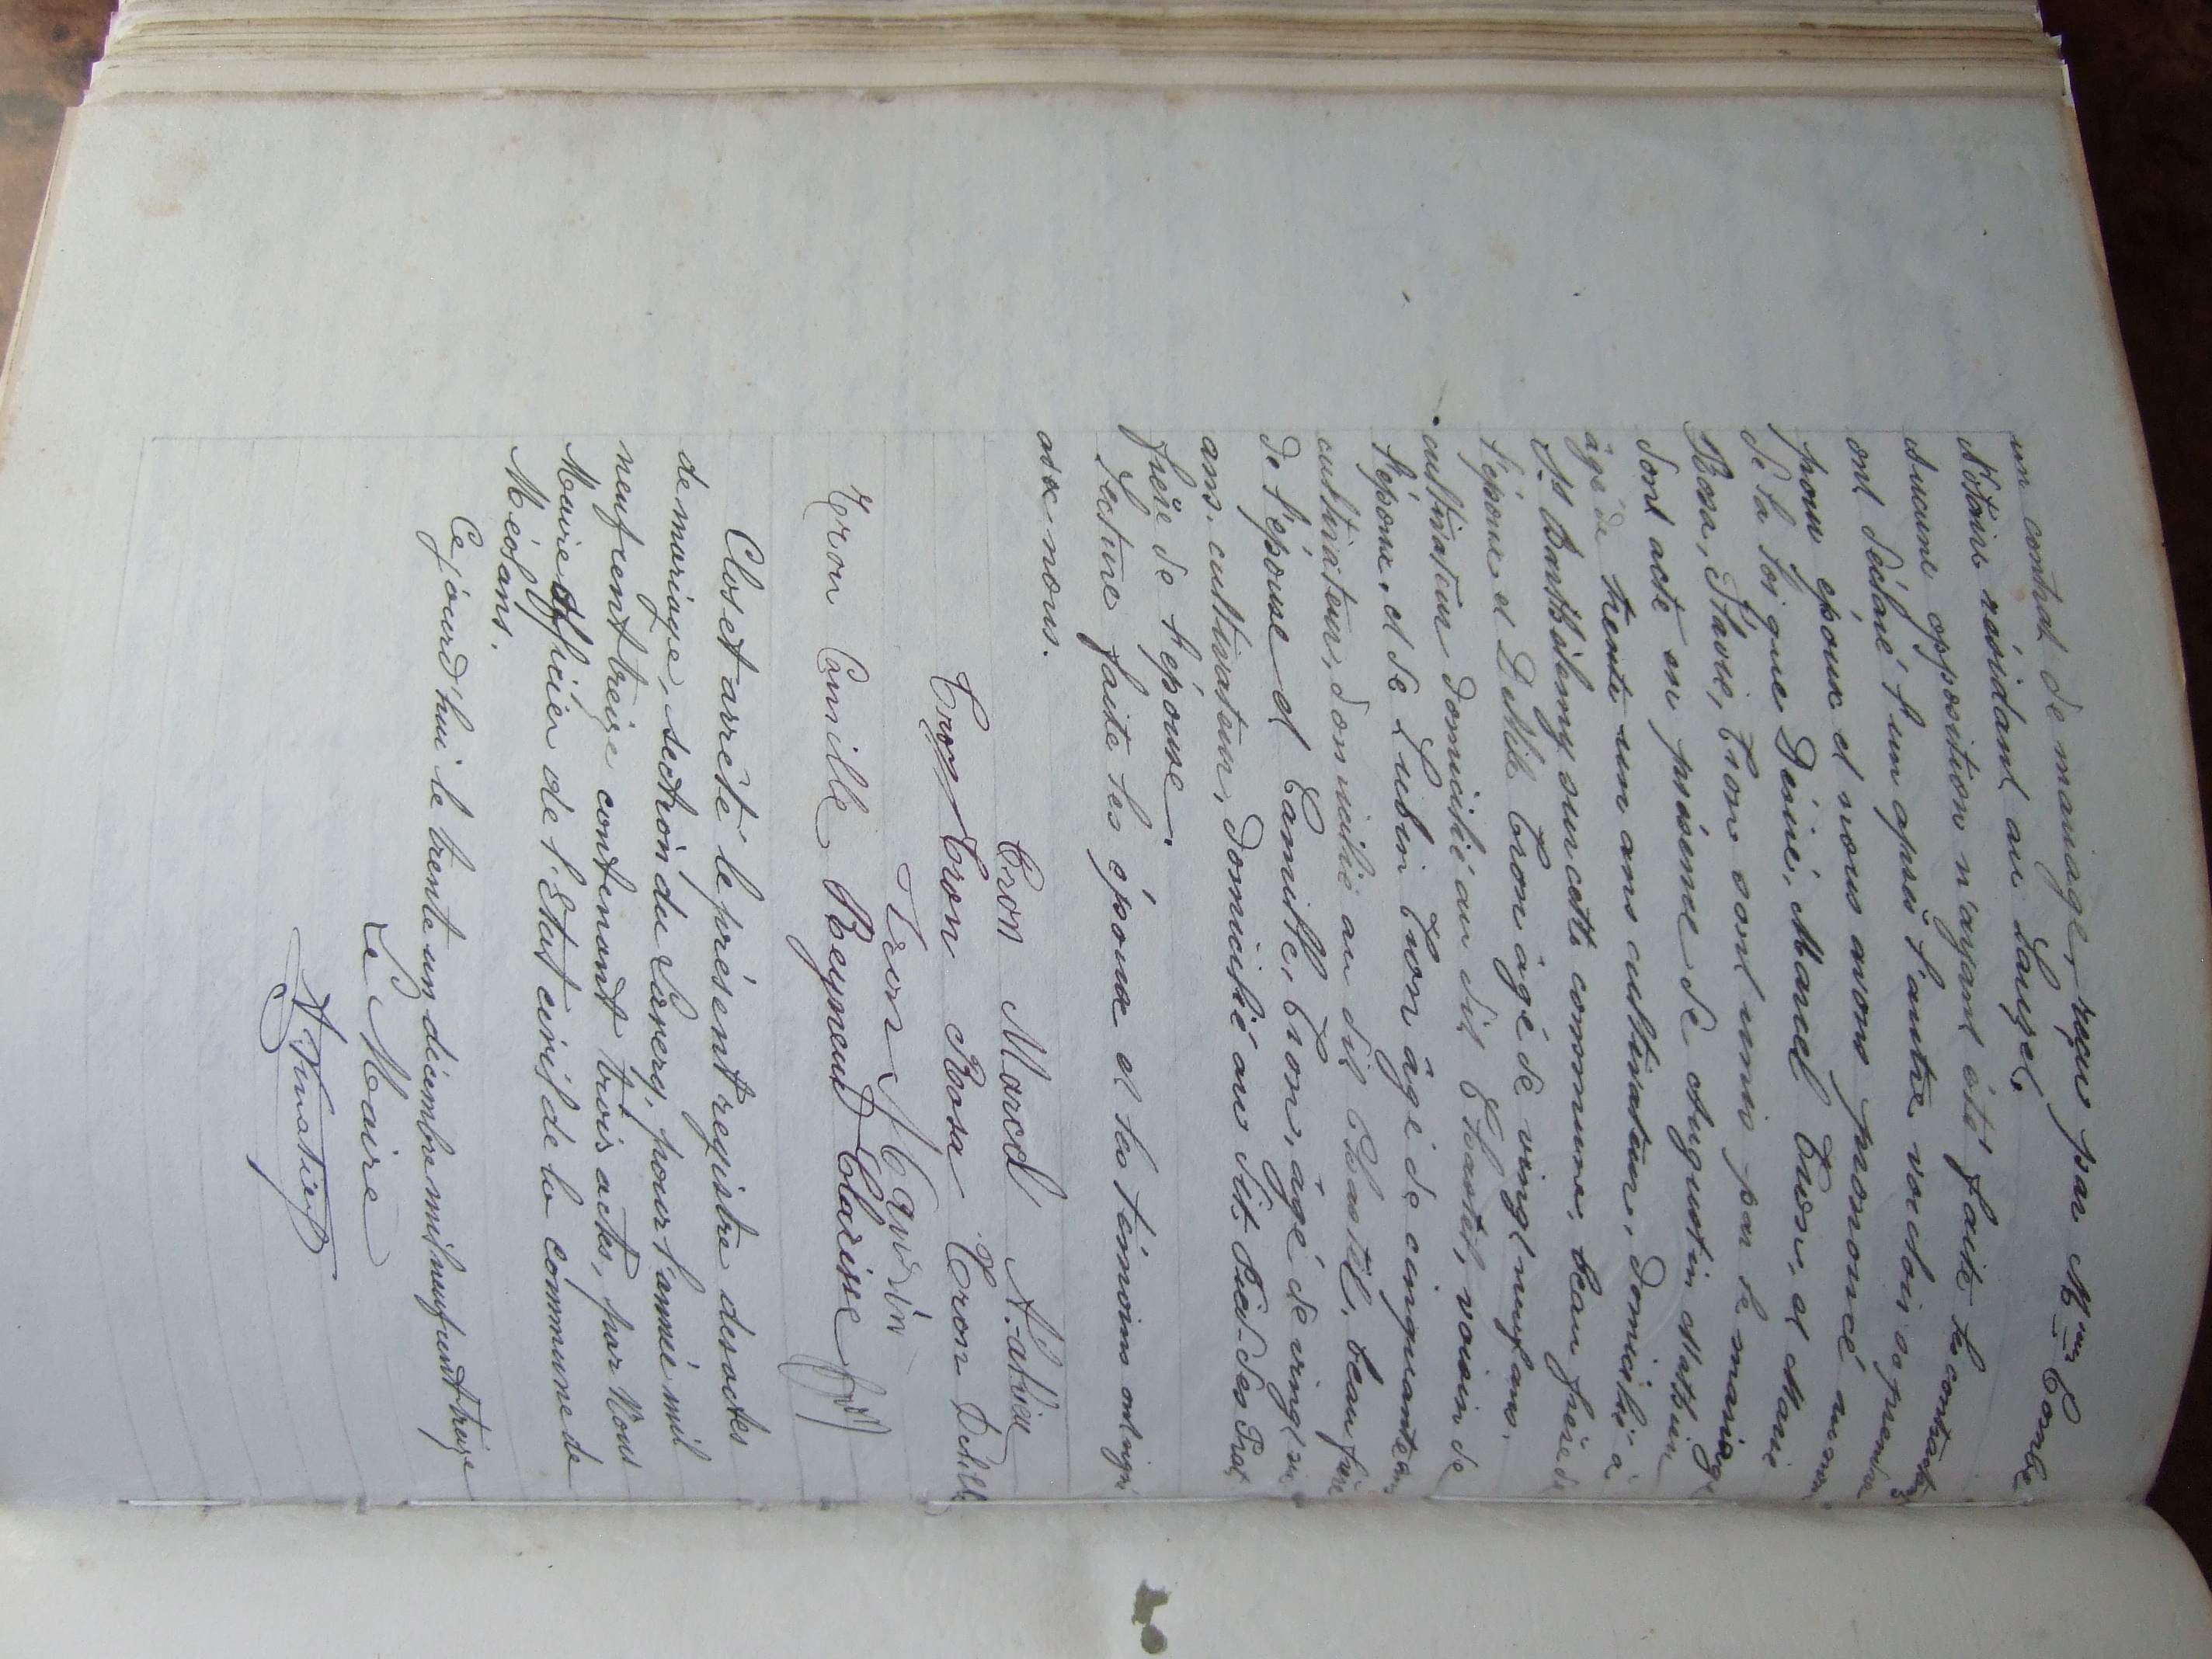 un contrat de mariage, reçu par M<sup>tre</sup> Combe
Notaire résidant au Lauzet.
Aucune opposition n'ayant été faite les contractants
ont déclaré l'un après l'autre vouloir se prendre
pour époux et nous avons prononcé au nom
de la loi que Désiré, Marcel Tron, et Marie
Rosa, Flavie, Tron sont unis par le mariage
Dont acte en présence de Augustin Matthieu
âgé de trente un ans cultivateur, domicilié à
St Barthélemy sur cette commune, beau frère de
l'époux et Tron âgé de vingt neuf ans.
cultivateur domicilié au dit Chastel, voisin de
l'époux, et de Lubin Tron âgé de cinquante ans
cultivateur, domicilié au dit Chastel, beau frère
de l'épouse et Camille, Tron, âgé de vingt six
ans, cultivateur, domicilié au dit Pied-des-Prats
frère de l'épouse.
Lecture faite les époux et les témoins ont signé
avec nous.
Tron Marcel
Tron Tron Rosa Tron
Tron
Tron Camille Reynaud Clarisse
Clos et arrêté le présent registre des actes
de mariage, section du Laverq, pour l'année mil
neuf cent treize contenant trois actes, par Nous
Maire officier de l'Etat civil de la commune de
Méolans.
Ce jourd'hui le trente un décembre mil neuf cent treize
Le Maire